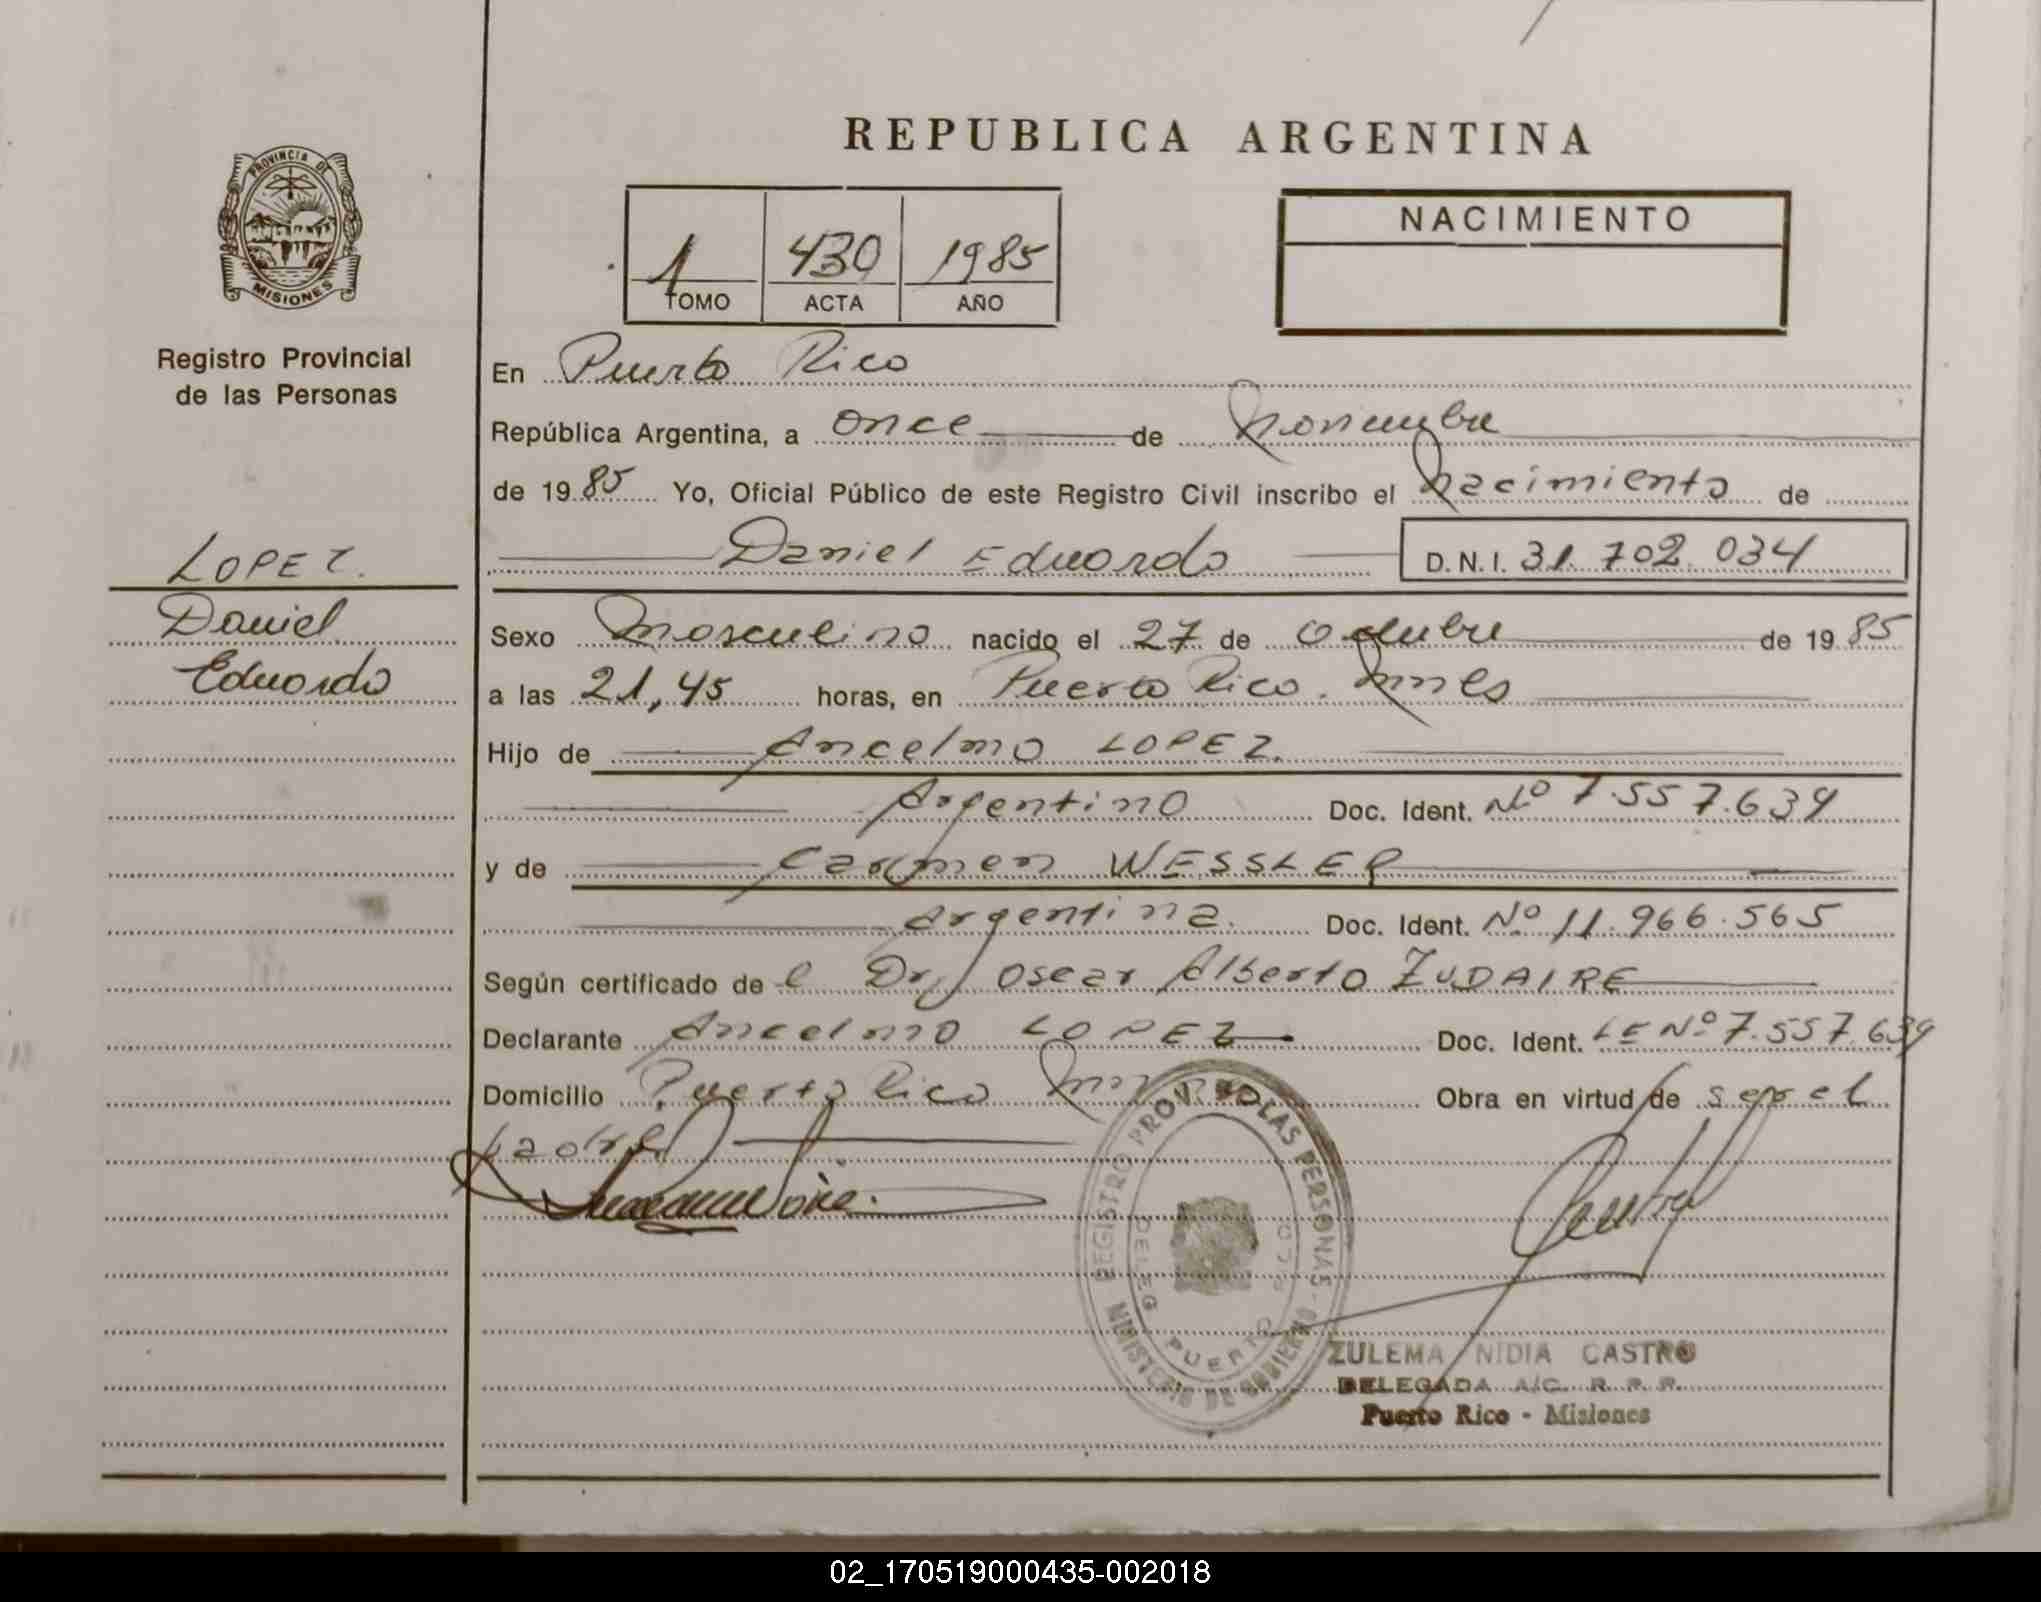 REPUBLICA ARGENTINA
PROVINCIA DE
MISIONES
Registro Provincial
de las Personas
1 430 1985
TOMO ACTA AÑO
NACIMIENTO
En Puerto Rico
República Argentina, a once de Noviembre
de 1985 Yo, Oficial Público de este Registro Civil inscribo el Nacimiento de
LOPEZ.
Daniel
Eduardo
Daniel Eduardo D.N.I. 31.702.034
Sexo Masculino nacido el 27 de Octubre de 1985
a las 21,45 horas, en Puerto Rico. Mnes
Hijo de Ancelmo LOPEZ.
Argentino Doc. Ident. Nº 7.557.639
y de Carmen WESSLER
Argentina. Doc. Ident. Nº 11.966.565
Según certificado de l Dr. Oscar Alberto ZUDAIRE
Declarante Ancelmo LOPEZ Doc. Ident. LE Nº 7.557.639
Domicilio Puerto Rico Obra en virtud de ser el
padre
REGISTRO PROV. DE LAS PERSONAS - MINISTERIO DE GOBIERNO
DELEG. PUERTO RICO
ZULEMA NIDIA CASTRO
DELEGADA A/C. R. P. P.
Puerto Rico - Misiones
02_170519000435-002018